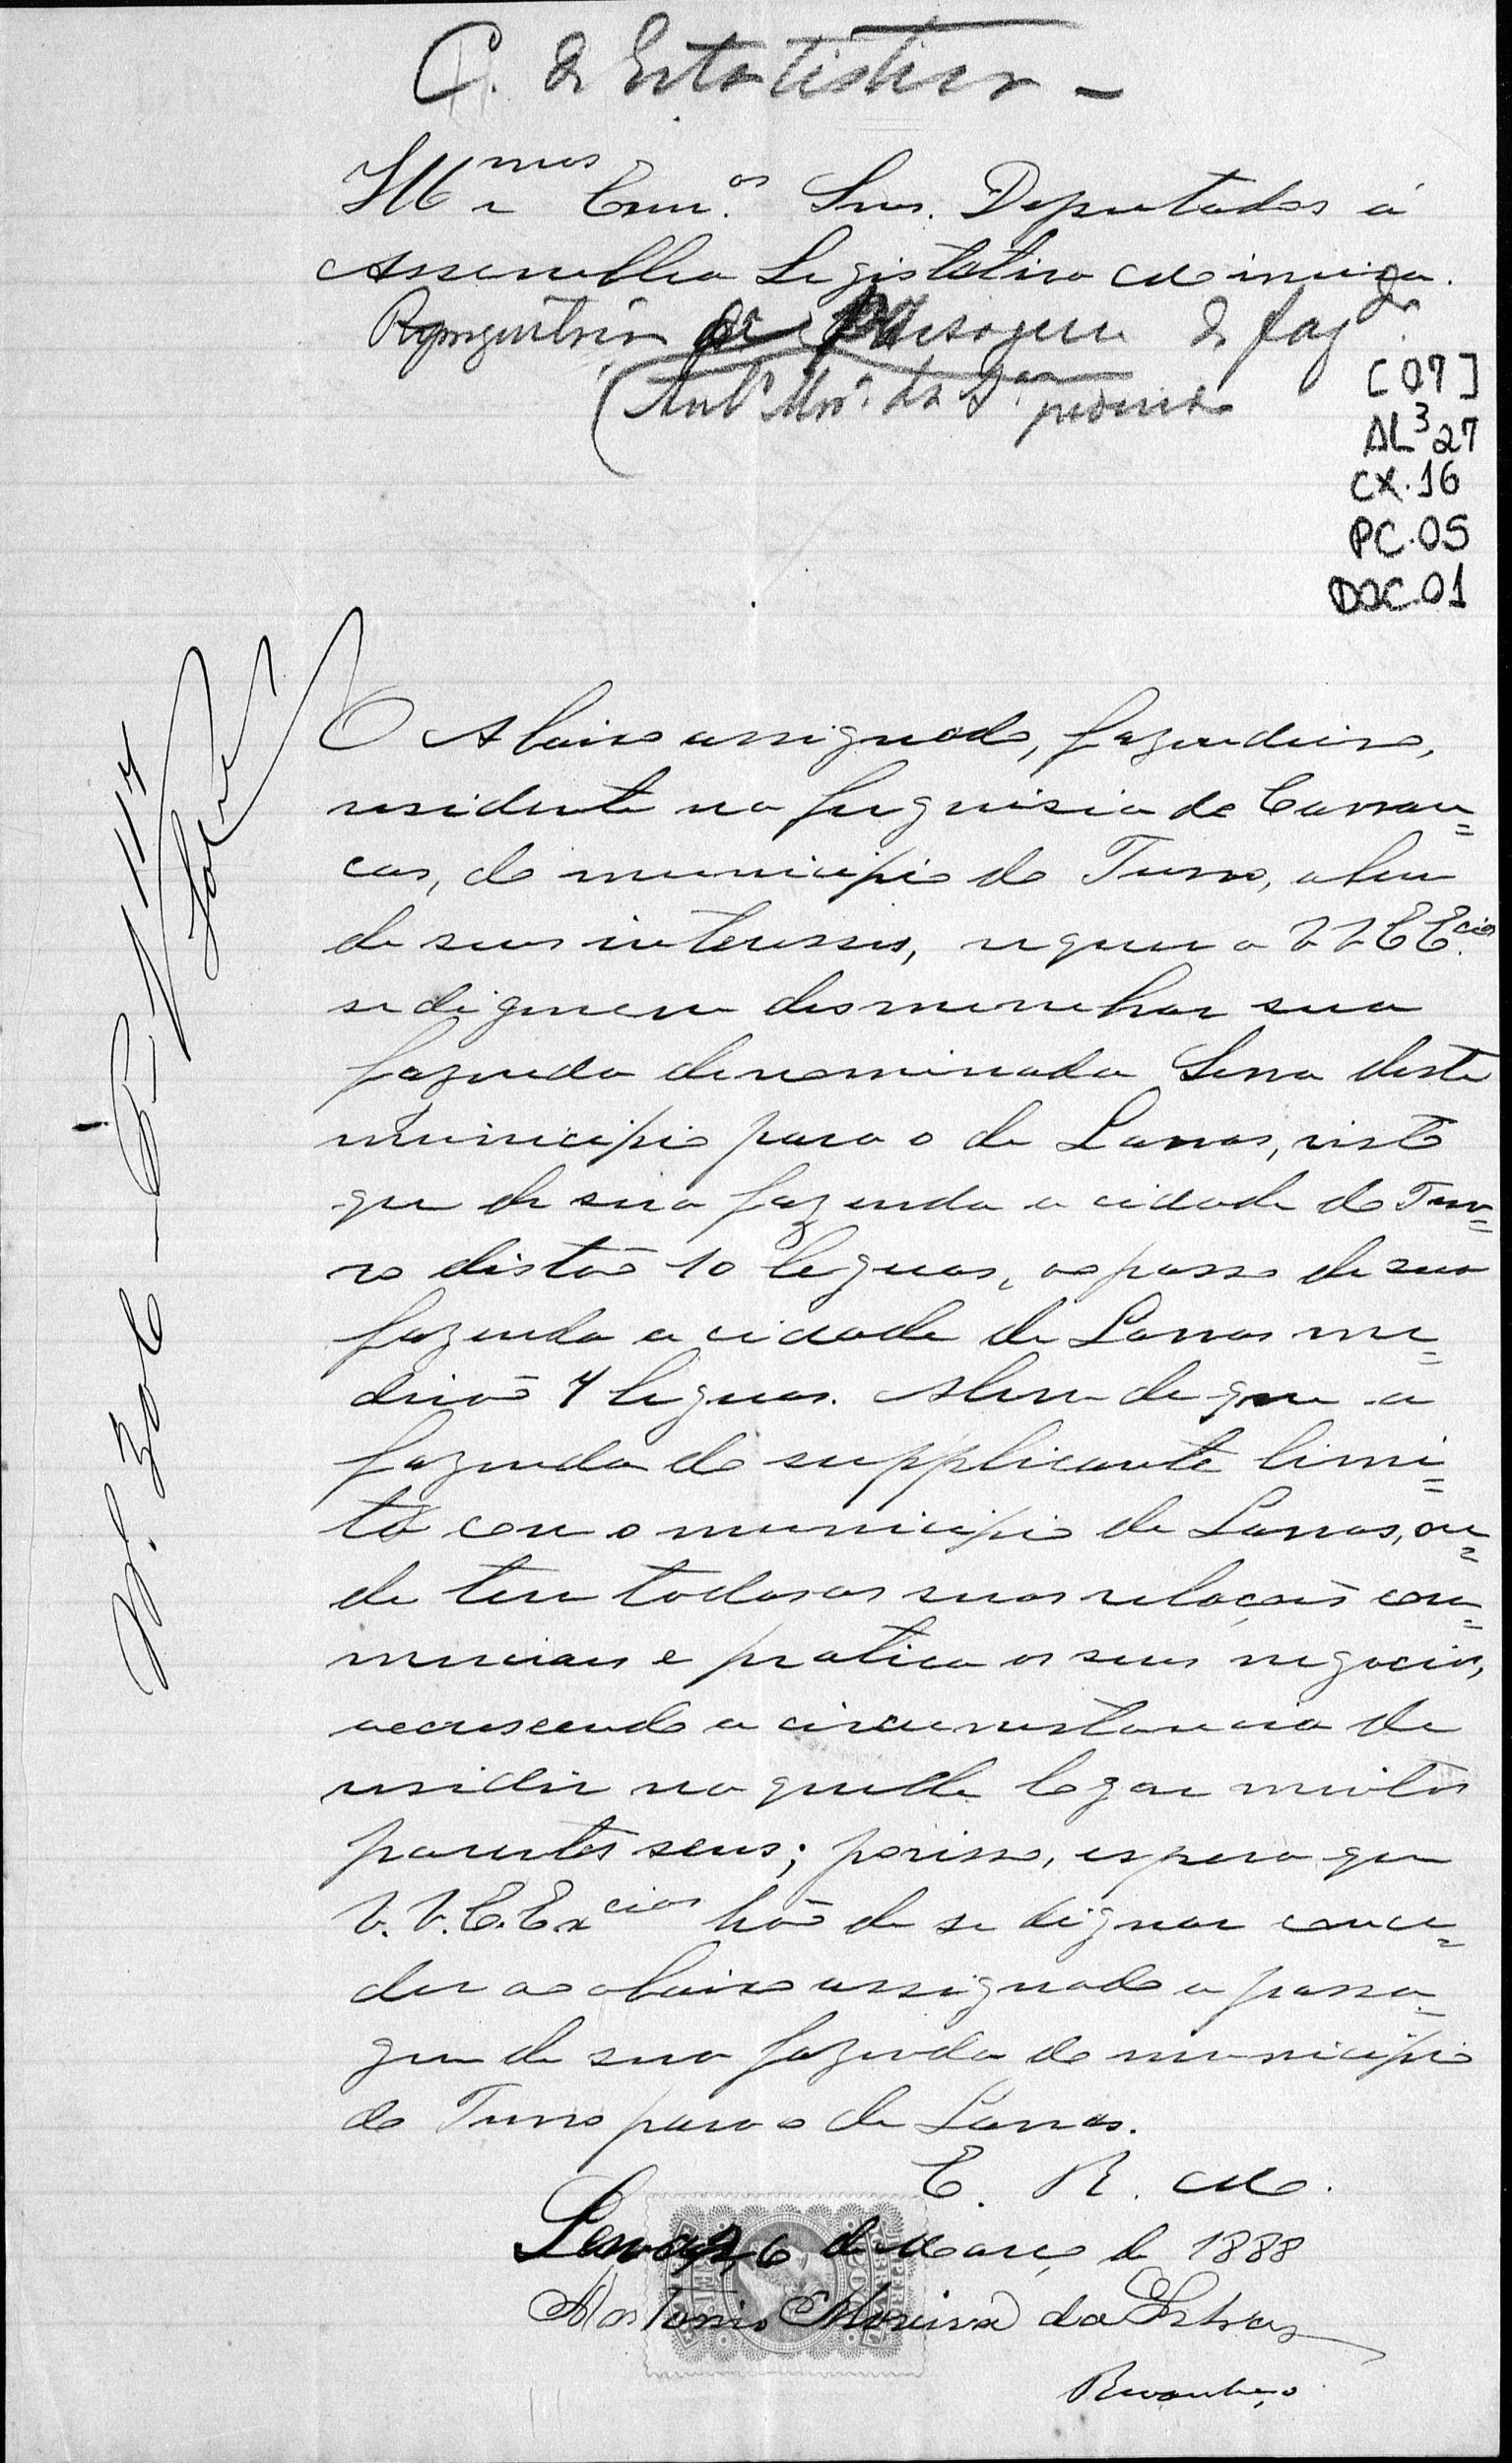 C. de Estatistica -
Ill.mos e Exm.os Snrs. Deputados á
Assemblea Legislativa Mineira.
passagem de faz.da
Ant.o Mor.a da S.a
[07]
AL3 27
CX.16
PC.05
DOC.01
O Abaixo assignado, fazendeiro,
residente na freguisia de Carran=
cas, do municipio do Turvo, a bem
de seus interesses, requer a VVEE.cias
se dignem desmembrar sua
fazenda denominada Serra deste
municipio para o de Lavras, visto
que de sua fazenda a cidade do Tur=
vo distão 10 leguas, ao passo de sua
fazenda a cidade de Lavras me=
deião 4 leguas. Alem de que a
fazenda do supplicante limi=
ta com o municipio de Lavras, on=
de tem todas as suas relações com=
merciaes e pratica os seus negocios,
accrescendo a circumstancia de
residir naquelle logar muitos
parentes seus; porisso, espera que
V.V.E.Excias hão de se dignar conce=
der ao abaixo assignado a passa=
gem de sua fazenda do municipio
do Turvo para o de Lavras.
E. R. M.
Lavras, 6 de Março de 1888
Antonio Moreira da Silva